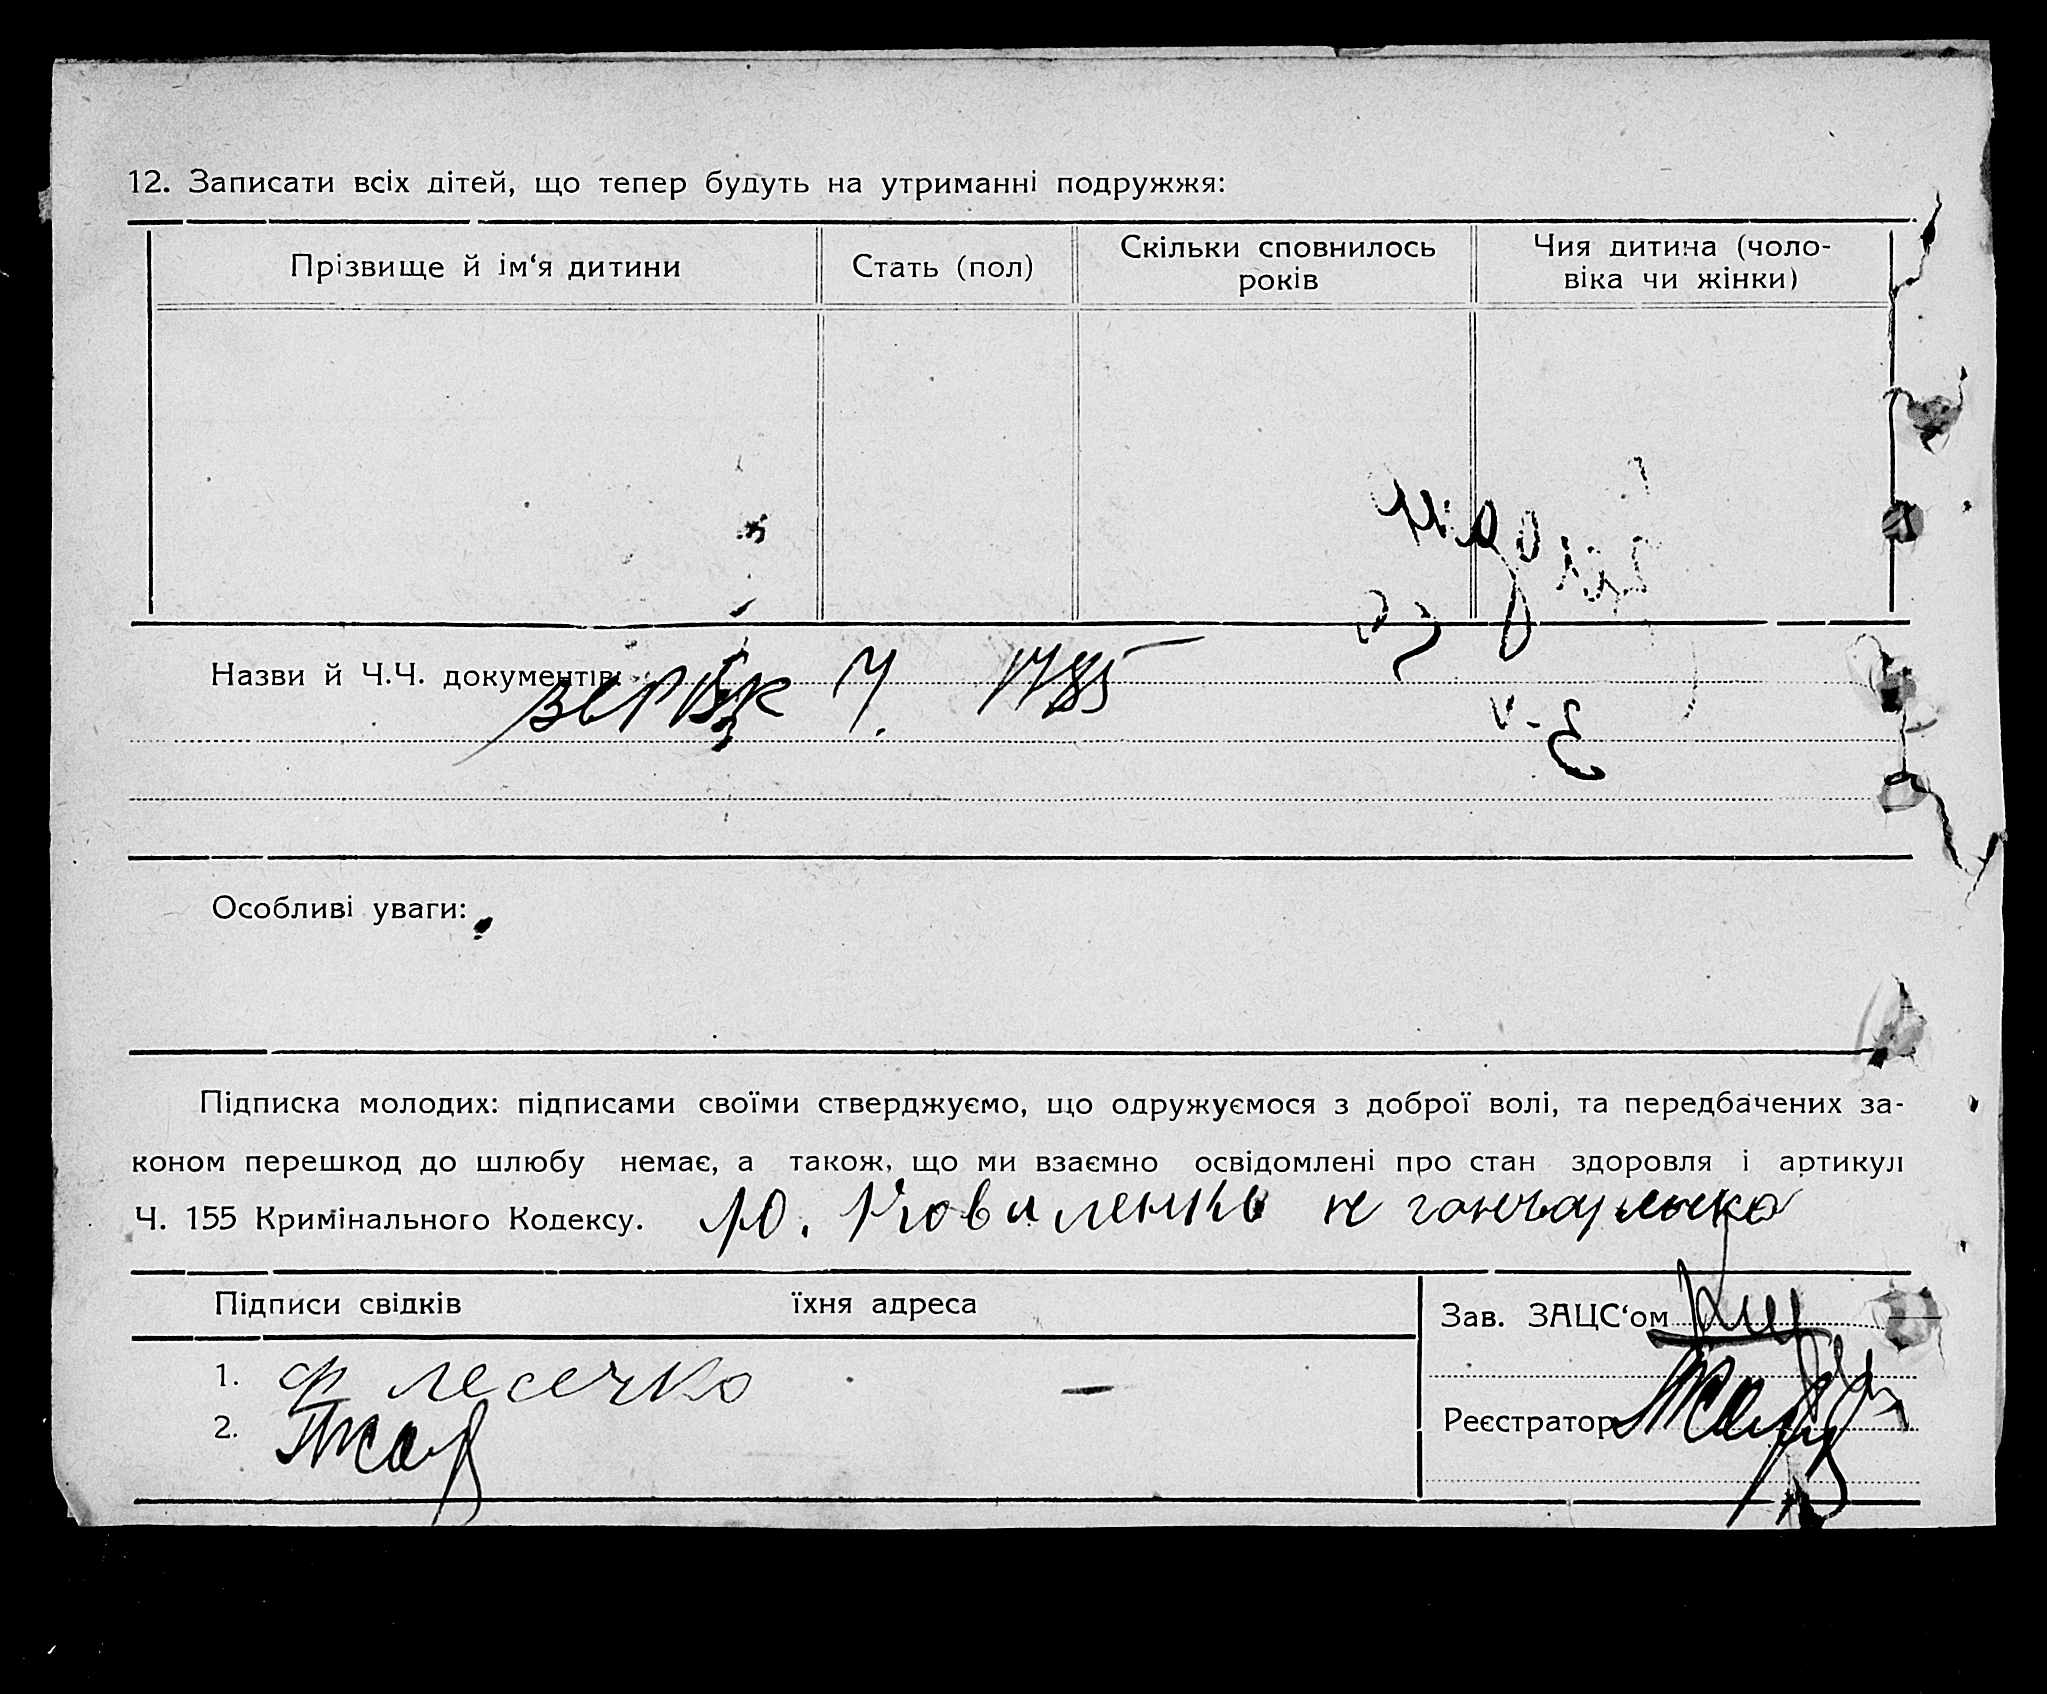 12. Записати всіх дітей, що тепер будуть на утриманні подружжя:
Прізвище й ім‘я дитини
Стать (пол)
Скільки сповнилось
років
Чия дитина (чоло-
віка чи жінки)
Назви й Ч.Ч. документів:
Особливі уваги:
Підписка молодих: підписами своїми стверджуємо, що одружуємося з доброї волі, та передбачених за-
коном перешкод до шлюбу немає, а також, що ми взаємно освідомлені про стан здоровля і артикул
Ч. 155 Кримінального Кодексу. Ю. Коваленко
Підписи свідків
їхня адреса
1. Ф лесечко —
2.
Зав. ЗАЦС‘ом
Реєстратор